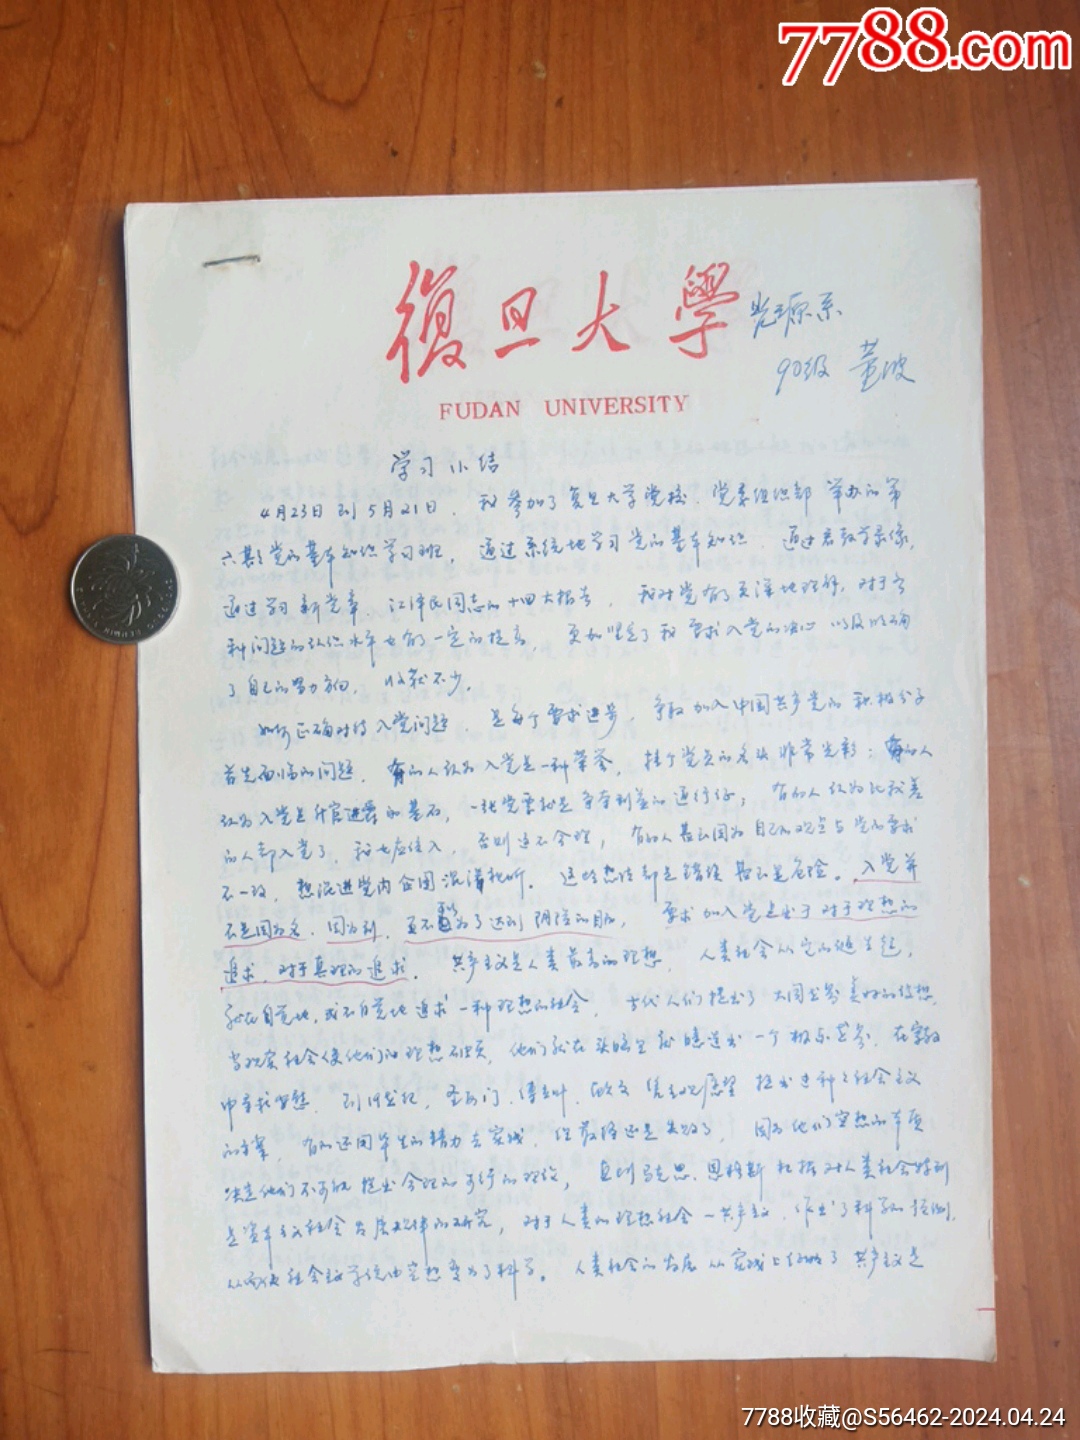 7788.com
復旦大學
光源系
90级 董波
FUDAN UNIVERSITY
学习小结
4月23日到5月21日,我参加了复旦大学党校、党委组织部举办的第
六期党的基本知识学习班,通过系统地学习党的基本知识、通过看教学录像,
通过学习新党章、江泽民同志的十四大报告,我对党有了更深地理解,对于各
种问题的认识水平也有了一定的提高,更加坚定了我要求入党的决心以及明确
了自己的努力方向,收获不少。
如何正确对待入党问题,是每个要求进步、争取加入中国共产党的积极分子
首先面临的问题,有的人认为入党是一种荣誉,挂个党员的名头非常光彩;有的人
认为入党是升官进爵的基石,一张党票就是争夺利益的通行证;有的人认为比我差
的人都入党了,我也应该入,否则这不合理;有的人甚至因为自己的观点与党的要求
不一致,想混进党内企图混淆视听。这些想法都是错误甚至是危险。入党并
不是因为名、因为利,更不是为了达到阴险的目的,要求加入党是出于对于理想的
追求,对于真理的追求。共产主义是人类最高的理想,人类社会从它的诞生起,
就在自觉地,或不自觉地追求一种理想的社会,古代人们提出了大同世界美好的设想,
当现实社会使他们的理想破灭,他们就在头脑里臆造出一个极乐世界,在宗教
中寻找安慰。到19世纪,圣西门、傅立叶、欧文凭主观愿望提出过种种社会主义
的方案,有的还用毕生的精力去实践,但最终还是失败了,因为他们空想的本质
决定他们不可能提出合理的可行的理论,直到马克思、恩格斯根据对人类社会特别
是资本主义社会发展规律的研究,对于人类的理想社会—共产主义,作出了科学的预测,
从而使社会主义学说由空想变为了科学。人类社会的发展从实践上证明了共产主义是
7788收藏@S56462-2024.04.24